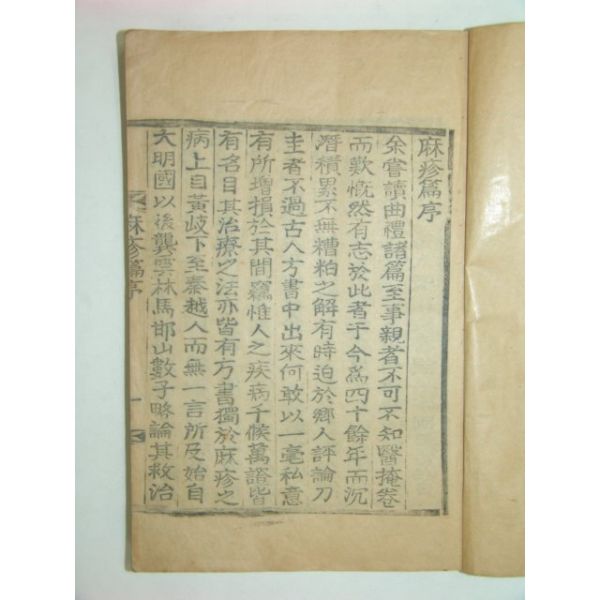 麻疹篇序
余嘗讀曲禮諸篇至事親者不可不知醫掩卷
而歎慨然有志於此者于今爲四十餘年而沉
潛積累不無糟粕之解有時迫於鄉人評論刀
圭者不過古人方書中出來何敢以一毫私意
有所增損於其間竊惟人之疾病千候萬證皆
有名目其治療之法亦皆有方書獨於麻疹之
病上自黃岐下至秦越人而無一言所及始自
大明國以後龔雲林馬邯山數子略論其救治
麻疹篇序
一